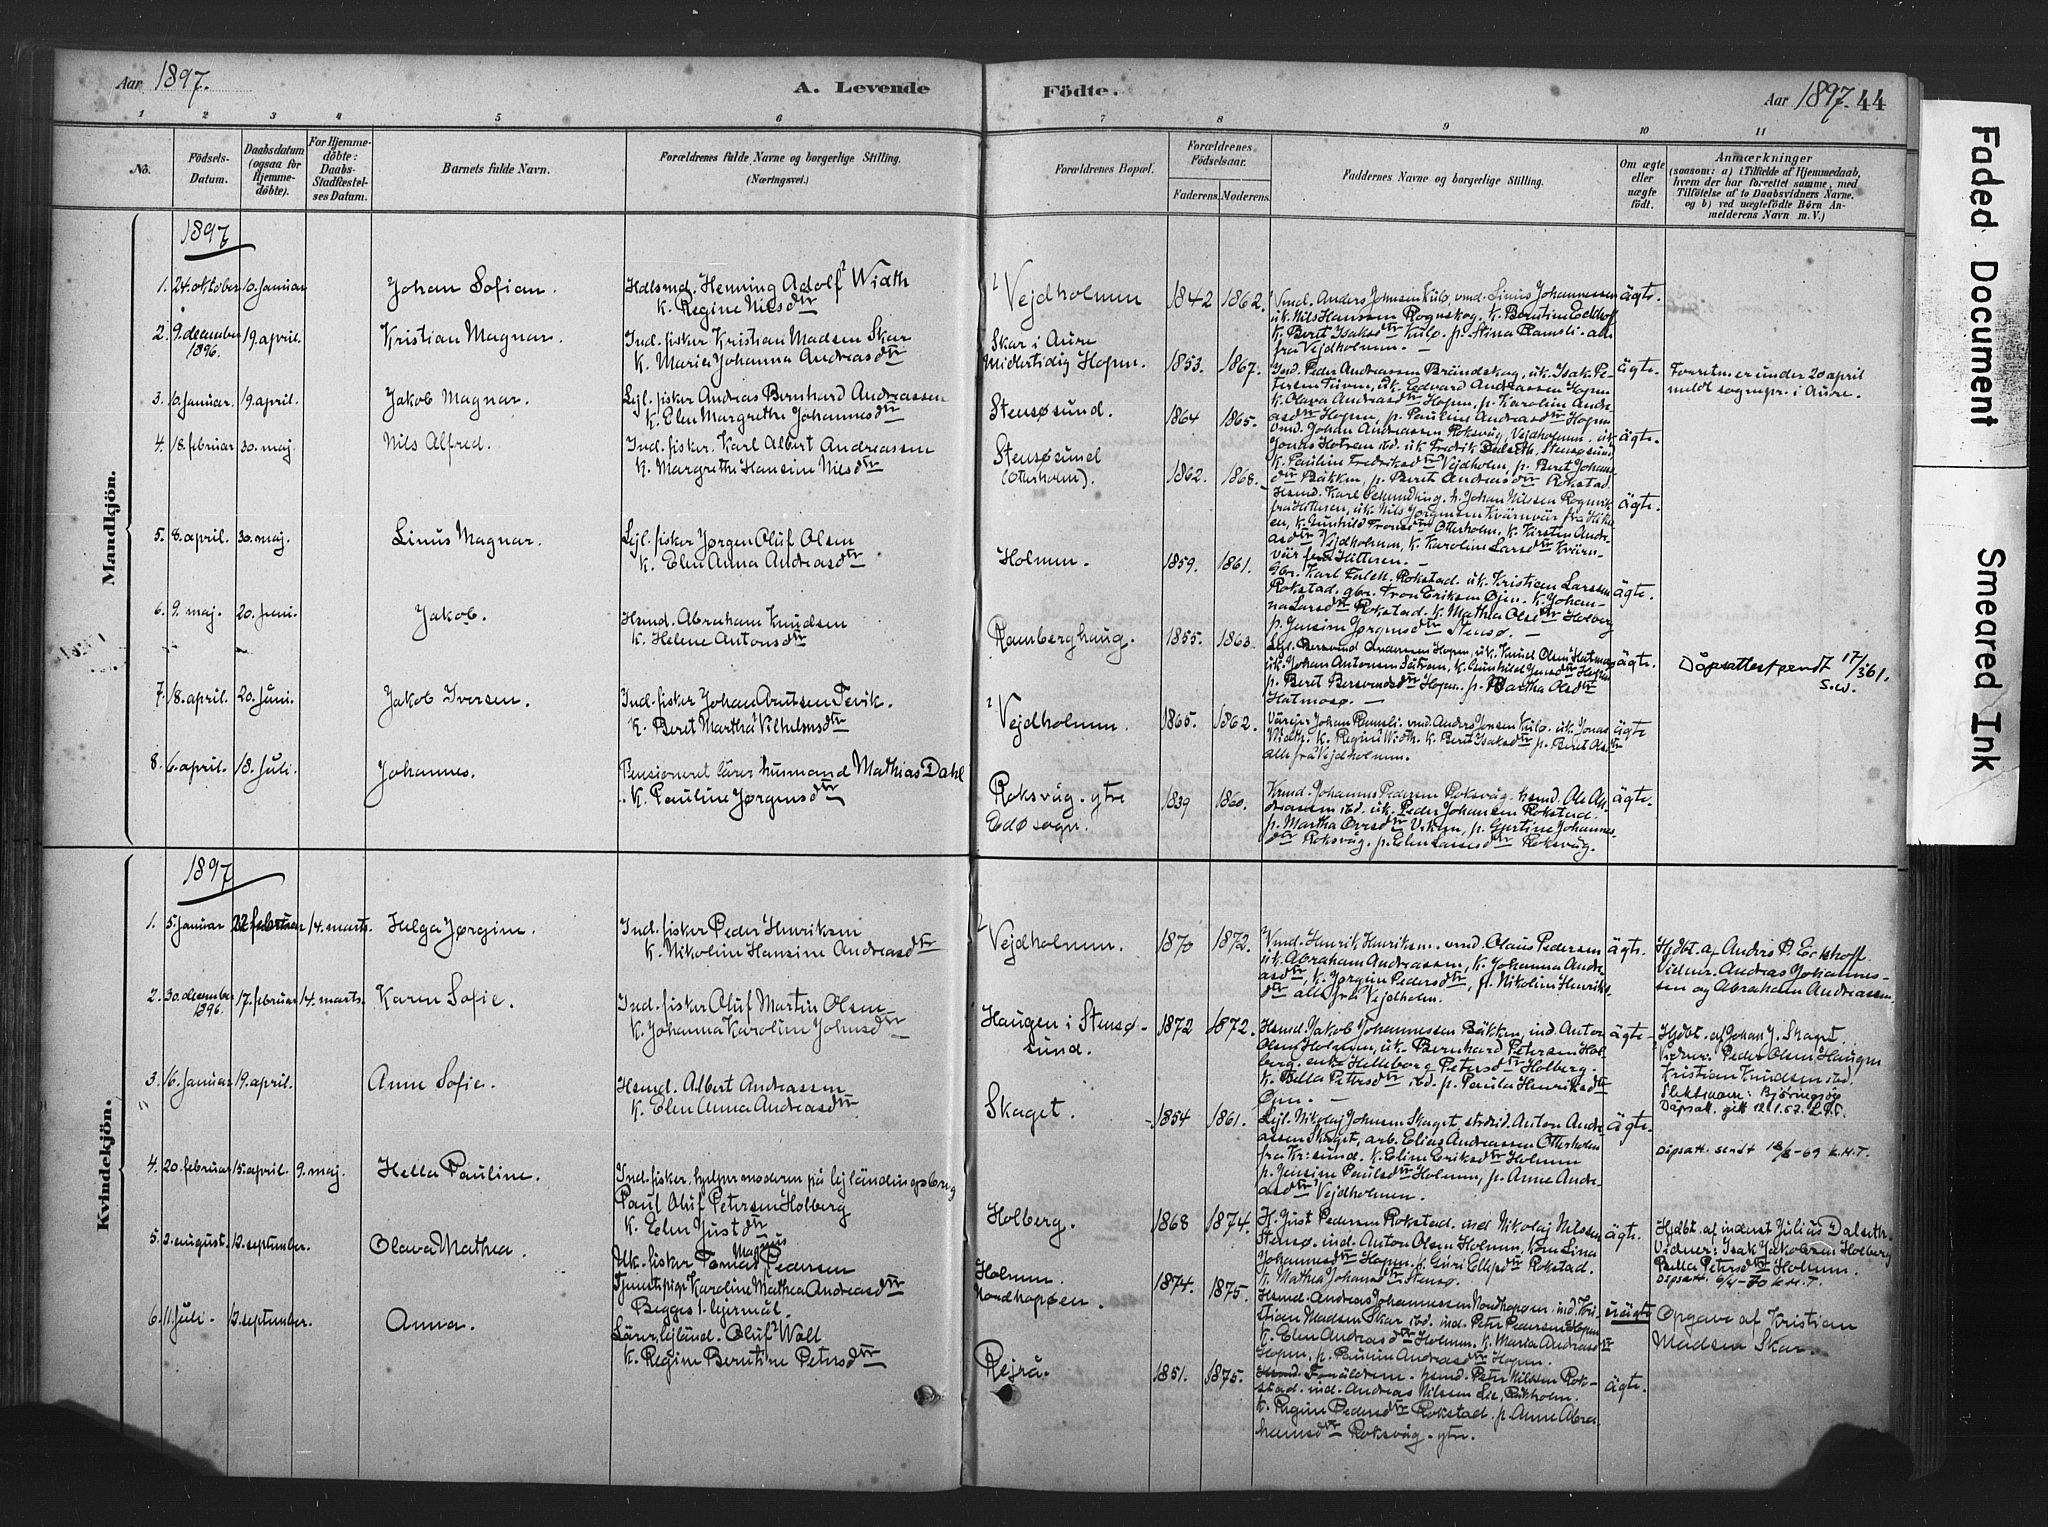 Aar 1897.
A. Levende Födte.
Aar 1897. 44
1 2 3 4 5 6 7 8 9 10 11
No.
Födsels-
Datum.
Daabsdatum
(ogsaa for
Hjemme-
döbte).
For Hjemme-
döbte:
Daabs-
Stadfæstel-
ses Datum.
Barnets fulde Navn.
Forældrenes fulde Navne og borgerlige Stilling.
(Næringsvei.)
Forældrenes Bopæl.
Forældrenes
Födselsaar.
Faderens. Moderens.
Faddernes Navne og borgerlige Stilling.
Om ægte
eller
uægte
födt.
Anmærkninger
(saasom: a) i Tilfælde af Hjemmedaab,
hvem der har forrettet samme, med
Tilföielse af to Daabsvidners Navne.
og b) ved uægtefödte Börn An-
melderens Navn m. V.)
Mandkjön.
1897
1. 24. oktober 10. januar Johan Sofian.
Hdlsmd. Henning Adolf Width
k. Regine Nilsdtr
Vejdholmen 1842 1862.
Vmd. Anders Johnsen Kulø, vmd. Linus Johannessen
uk. Nils Hanssen Rognskog. k. Berntine Eckhoff
k. Beret Isaksdtr Kulø. p. Stina Ramsli. alle
fra Vejdholmen.
ägte.
2. 9. december 1896. 19. april. Kristian Magnar.
Ind. fisker Kristian Madsen Skar
k. Marie Johanna Andreasdtr
Skar i Aure
Midlertidig Hopen. 1853. 1867.
Ind. Peder Andreassen Brandskog, uk. Isak Pe-
tersen Tuven, uk. Edvard Andreassen Hopen
k. Olava Andreasdtr Hopen, p. Karolin Andre-
asdtr Hopen, p. Pauline Andreasdtr Hopen
ägte.
Forretn. er under 20 april
meldt sognepr. i Aure.
3. 6. januar. 19. april. Jakob Magnar.
Lejl. fisker Andreas Bernhard Andreassen
k. Elen Margrethe Johannesdtr
Stensøsund. 1864 1865.
vmd. Johan Andreassen Roksvåg, Vejdholmen. uk.
Jonas Hotven ibd. uk. Fredrik Dalseth. Stensøsund
k. Pauline Fredriksdtr Vejdholm, p. Beret Johans-
dtr Bakken, p. Beret Andreasdtr Rokstad.
ägte.
4. 18. februar 30. maj. Nils Alfred.
Ind. fisker. Karl Albert Andreassen
k. Margrethe Hansine Nilsdtr
Stensøsund
(Otterholm). 1862. 1868.
Hsmd. Karl Schmidling. h. Johan Nilssen Rognvik
fra Hitteren, uk. Nils Jørgensen Kvärnvär fra Hitter-
en, k. Gunhild Tronsdtr Otterholm, k. Kirsten Andre-
asdtr Vejdholmen, k. Karoline Larsdtr Kvärn-
vär fra Hitteren.
ägte.
5. 8. april. 30. maj. Linus Magnar.
Lejl. fisker Jørgen Oluf Olsen
k. Elen Anna Andreasdtr
Holmen. 1859. 1861.
Gbr. Karl Falck Rokstad. uk. Kristian Larssen
Rokstad. gbr. Tron Eriksen Øjen. k. Johan-
na Larsdtr Rokstad. k. Mathea Olsdtr Holberg
p. Jensine Jørgensdtr Stensø.
ägte.
6. 9. maj. 20. Juni. Jakob.
Hsmd. Abraham Knudsen
k. Helene Antonsdtr
Ramberghaug. 1855. 1863.
Lejl. Bersvend Andersen Hopen, uk. Knud Olsen Hatmosø
uk. Johan Antonsen Sätran, k. Gunhild Jensdtr Hopen
p. Beret Bersvendsdtr Hopen. p. Martha Olsdtr
Hatmosø.
ägte.
Dåpsattest sendt 17/3 61.
S.W.
7. 18. april. 20. Juni. Jakob Iversen.
Ind. fisker Johan Arntsen Tevik.
k. Beret Martha Vilhelmsdtr
Vejdholmen. 1865. 1862.
Värejer Johan Ramsli. vmd. Anders Jonsen Kulø. uk. Jonas
Width. k. Regine Width. k. Berit Isaksdtr p. Beret Olsdtr
alle fra Vejdholmen.
ägte
8. 6. april. 18. Juli. Johannes.
Pensioneret lärer husmand Mathias Dahl
k. Pauline Jørgensdtr
Roksvåg. ytre
Edø sogn. 1839 1860.
Krmd. Johannes Pedersen Roksvåg. hsmd. Ole An-
dreassen ibd. uk. Peder Johansen Rokstad.
p. Martha Oresdtr Viken, p. Gjertine Johannes-
dtr Roksvåg. p. Elen Larsdtr Roksvåg.
ägte.
Kvindekjön.
1897
1. 5. januar 22 februar 14. marts. Helga Jørgine.
Ind. fisker Peder Henriksen
k. Nikoline Hansine Andreasdtr
Vejdholmen. 1870 1872.
Vmd. Henrik Henriksen. vmd. Olaus Pedersen
uk. Abraham Andreassen, k. Johanna Andre-
asdtr, k. Jørgine Pedersdtr, p. Nikoline Henriks-
dtr alle fra Vejdholm.
ägte.
Hjdbt. af Anders P. Eckhoff
Vidner. Andreas Johannes-
sen og Abraham Andreassen.
2. 30. december 1896. 17. februar 14. marts. Karen Sofie.
Ind. fisker Oluf Martin Olsen
k. Johanna Karoline Johnsdtr
Haugen i Stensø-
sund. 1872 1872.
Hsmd. Jakob Johannessen Bakken, ind. Anton
Olsen Holmen, uk. Bernhard Petersen Hol-
berg, enke Helleborg Petersdtr Holberg.
k. Bella Petersdtr ibd. p. Paula Henriksdtr
Øjen.
ägte.
Hjdbt. af Johan J. Skaget.
Vidner: Peder Olsen Haugen
Kristian Knudsen ibd.
Slektsnavn: Björingsög
Dåpsatt. gitt 12.1.57. L.T.C.
3. 16. januar 19. april. Anne Sofie.
Hsmd. Albert Andreassen
k. Elen Anna Andreasdtr
Skaget. 1854 1861.
Lejl. Nikolaj Johnsen Skaget, strdsd. Anton Andre-
assen Skaget, arb. Elias Andreassen Otterholm
fra Kr:sund. k. Eline Eriksdtr Holmen
p. Jensine Paulsdtr Holmen, p. Anne Andre-
asdtr Vejdholmen.
ägte.
Dåpsatt. sendt 18/8-69 K.H.T.
4. 20. februar 15. april. 9. maj. Hella Pauline.
Ind. fisker, hjelper moderen på lejländingsbrug
Paul Oluf Petersen Holberg
k. Elen Justdtr
Holberg. 1868 1874.
H. Just Pedersen Rokstad. ind Nikolaj Nilssen
Stensø. ind. Anton Olsen Holmen, kone Lina
Johannesdtr Hopen. k. Guri Ellefsdtr Rokstad.
k. Mathea Johansdtr Stensø.
ägte.
Hjdbt. af inderst Julius Dalseth.
Vidner: Isak Jakobsen Holberg
Bella Petersdtr Holmen.
Dåpsatt. 6/4-70 K.H.T.
5. 2. august. 12. september. Olava Mathea.
Uk. fisker Tomas Magnus Pedersen
Tjenestpige Karoline Mathea Andreasdtr
Begges 1. lejermål.
Holmen.
Nordhopøen. 1874. 1875.
Hsmd. Andreas Johannessen Nordhopøen. ind. Kri-
stian Madsen Skar ibd. ind. Peter Pedersen Hopen
k. Elen Andreasdtr Holmen. k. Maria Andreasdtr
Hopen, p. Pauline Andreasdtr Hopen.
uägte
Opgave af Kristian
Madsen Skar.
6. 11. juli. 12. september. Anna.
Lärer, lejländ. Oluf Wolt
k. Regine Berntine Petersdtr
Rejrå. 1851. 1875.
Hsmd. Forældrene. hsmd. Peter Nilssen Rok-
stad. ind. Andreas Nilssen Lie, Räkholm.
k. Regine Pedersdtr Rokstad. p. Anne Abra-
hamsdtr Roksvåg. ytre.
ägte.
Faded Document
Smeared Ink